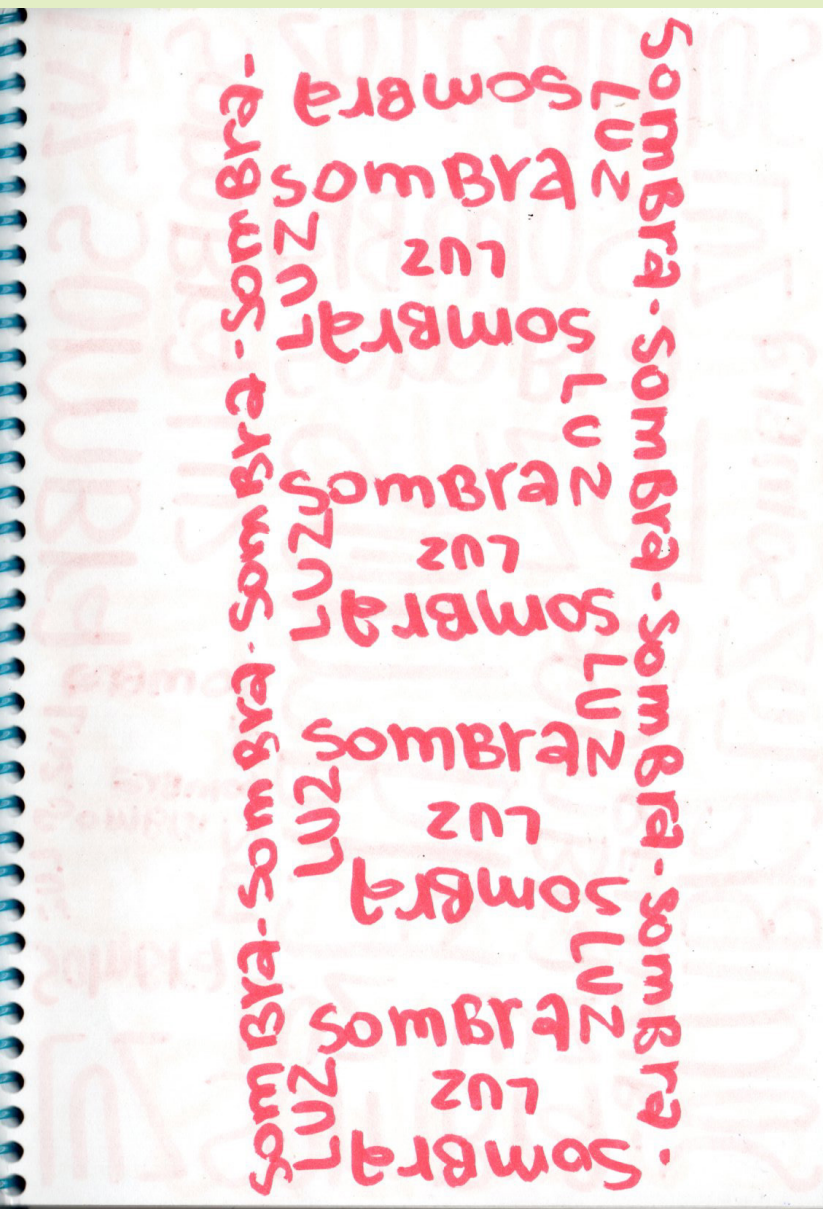 somBra-somBra-somBra-somBra-
somBra
LUZ
somBra
LUZ
LUZ
somBra
LUZ
somBra
LUZ
LUZ
somBra
LUZ
somBra
LUZ
LUZ
somBra
LUZ
somBra
LUZ
LUZ
somBra
SomBra-SomBra-SomBra-SomBra-